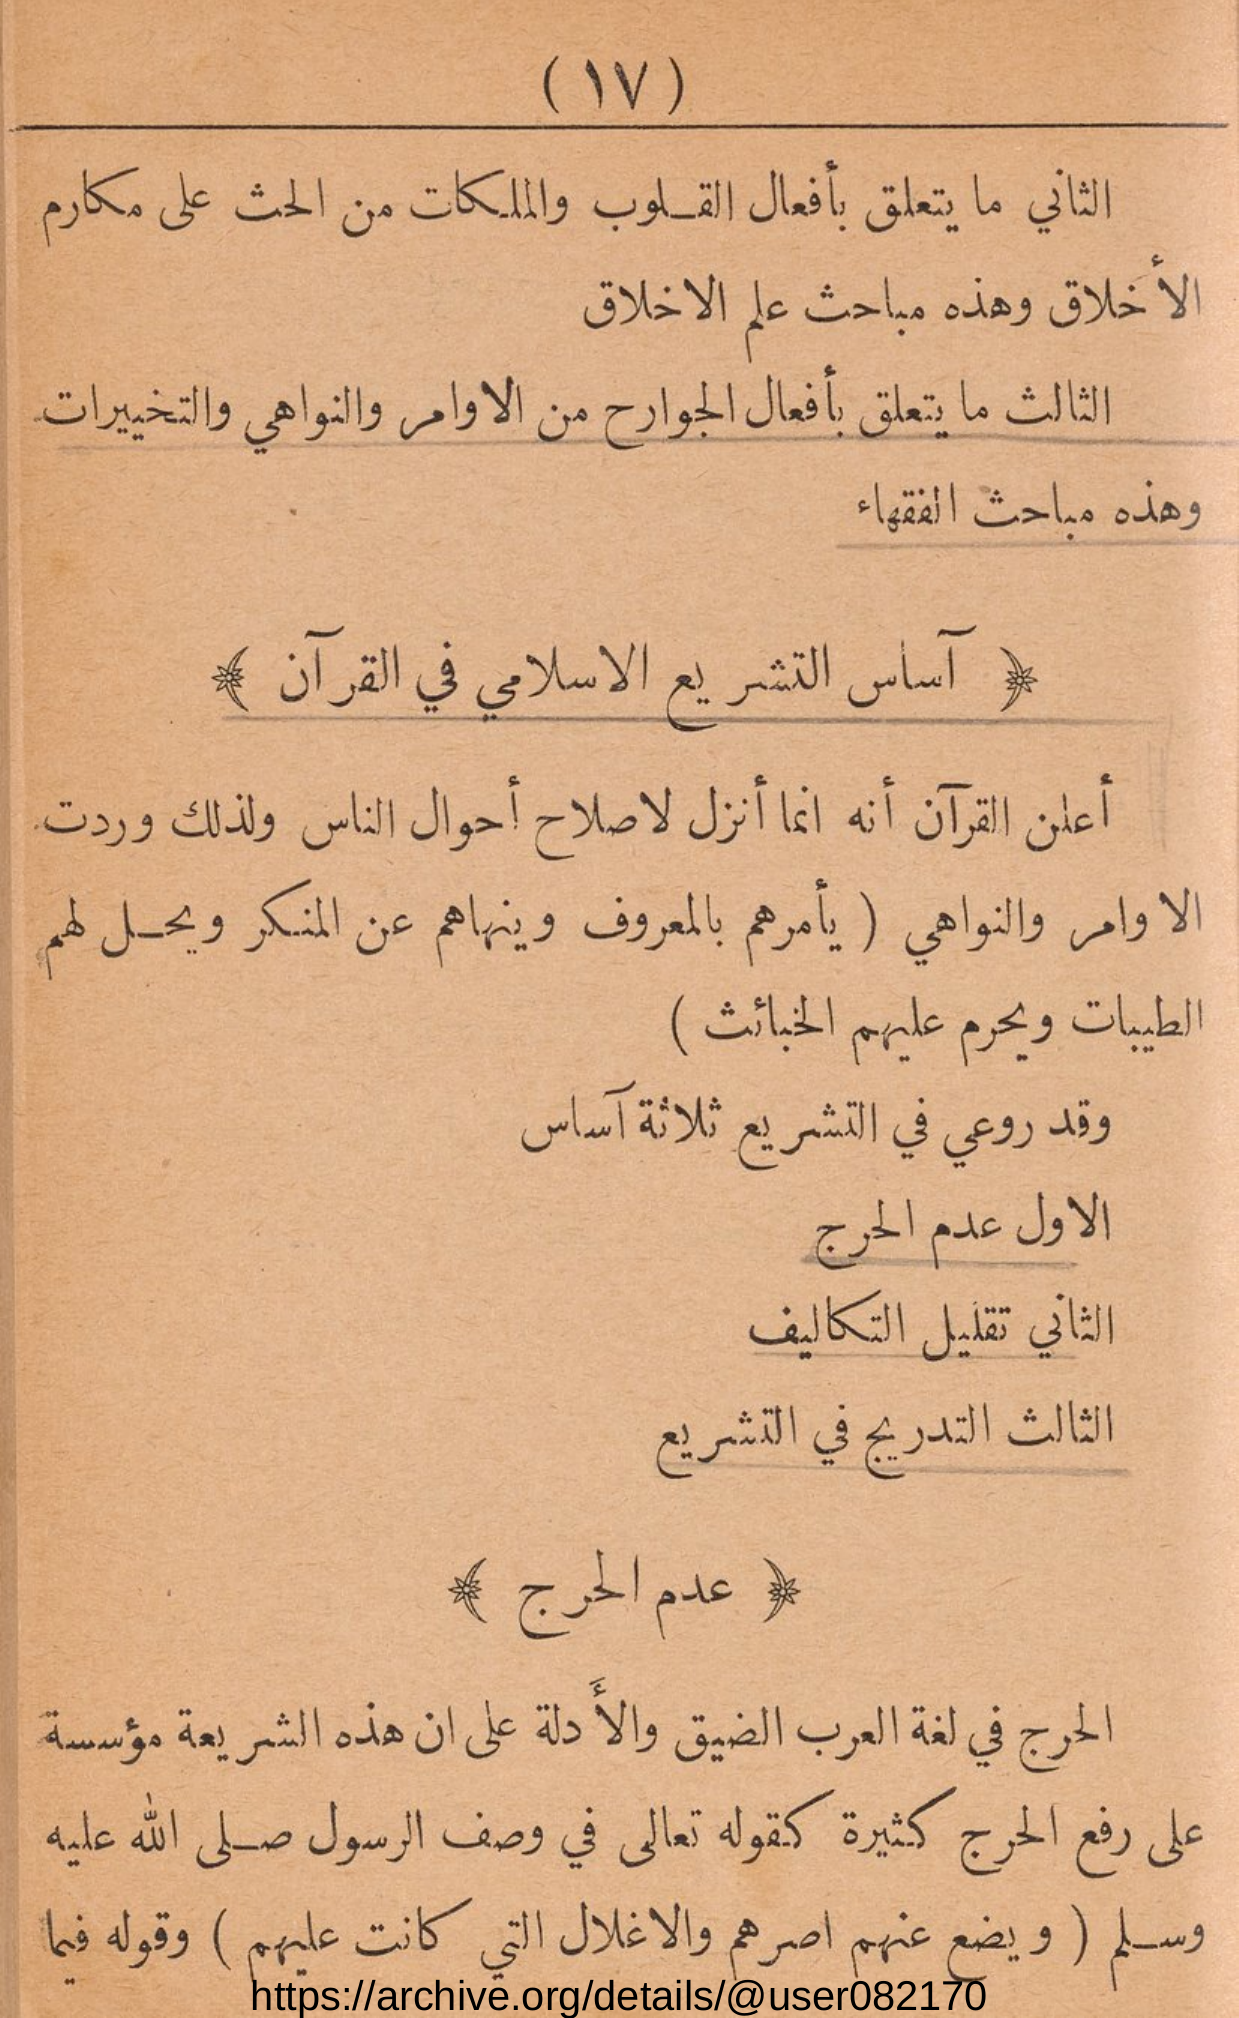 ( ١٧ )
الثاني ما يتعلق بأفعال القـلوب والملـكات من الحث على مكارم
الأخلاق وهذه مباحث علم الاخلاق
الثالث ما يتعلق بأفعال الجوارح من الاوامر والنواهي والتخييرات
وهذه مباحث الفقهاء
﴿ آساس التشريع الاسلامي في القرآن ﴾
أعلن القرآن أنه انما أنزل لاصلاح أحوال الناس ولذلك وردت
الاوامر والنواهي ( يأمرهم بالمعروف وينهاهم عن المنكر ويحـل لهم
الطيبات ويحرم عليهم الخبائث )
وقد روعي في التشريع ثلاثة آساس
الاول عدم الحرج
الثاني تقليل التكاليف
الثالث التدريج في التشريع
﴿ عدم الحرج ﴾
الحرج في لغة العرب الضيق والأَدلة على ان هذه الشريعة مؤسسة
على رفع الحرج كثيرة كقوله تعالى في وصف الرسول صـلى الله عليه
وسـلم ( ويضع عنهم اصرهم والاغلال التي كانت عليهم ) وقوله فيما
https://archive.org/details/@user082170